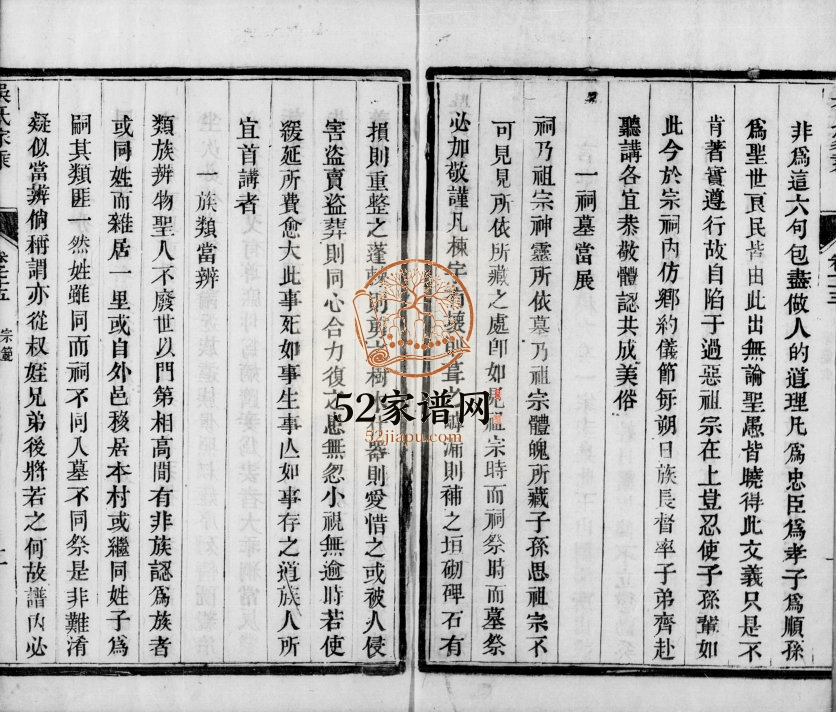 非爲這六句包盡做人的道理凡爲忠臣爲孝子爲順孫
爲聖世良民皆由此出無論聖愚皆曉得此文義只是不
肯著實遵行故自陷于過惡祖宗在上豈忍使子孫輩如
此今於宗祠內仿鄉約儀節每朔日族長督率子弟齊赴
聽講各宜恭敬體認共成美俗
一祠墓當展
祠乃祖宗神靈所依墓乃祖宗體魄所藏子孫思祖宗不
可見見所依所藏之處卽如見祖宗時而祠祭時而墓祭
必加敬謹凡棟宇有壞則葺之罅漏則補之垣砌碑石有
損則重整之蓬棘則剪之樹木什器則愛惜之或被人侵
害盜賣盜葬則同心合力復之患無忽小視無逾時若使
緩延所費愈大此事死如事生事亾如事存之道族人所
宜首講者
一族類當辨
類族辨物聖人不廢世以門第相高間有非族認爲族者
或同姓而雜居一里或自外邑移居本村或繼同姓子爲
嗣其類匪一然姓雖同而祠不同入墓不同祭是非難淆
疑似當辨倘稱謂亦從叔姪兄弟後將若之何故譜內必
吳氏家乘
宗範
52家谱网
52jiapu.com